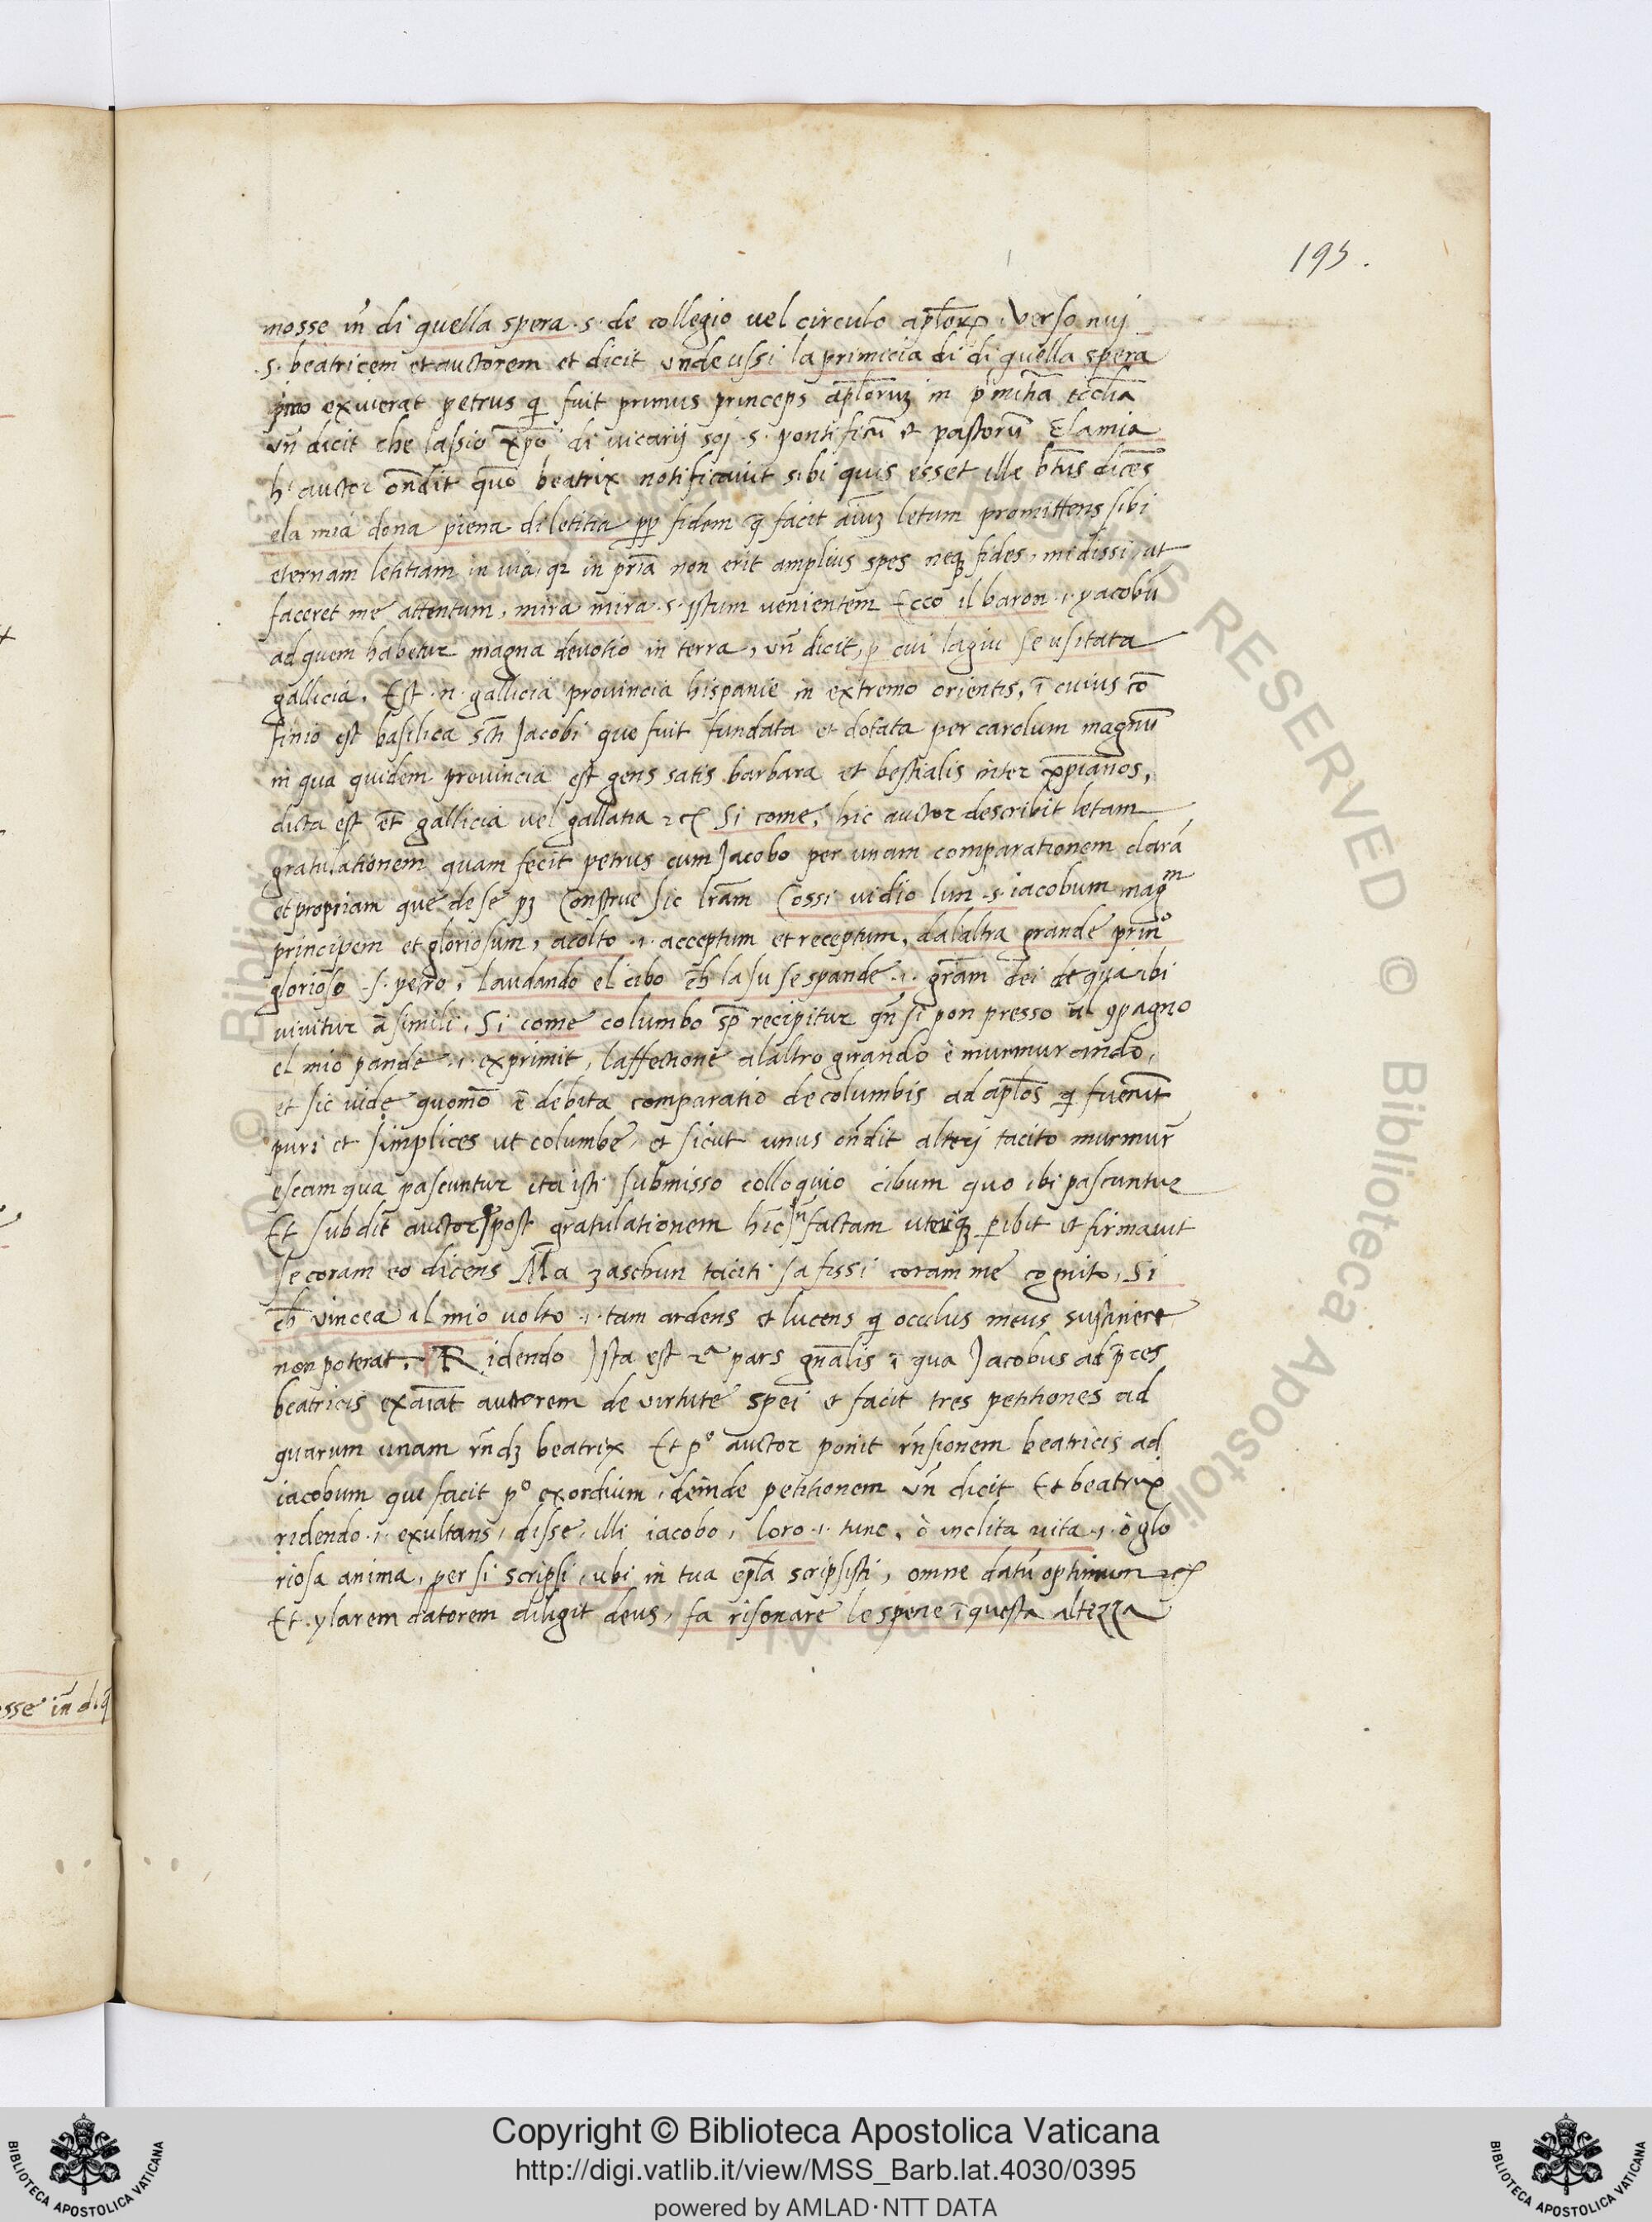 195.
mosse in̄ di quella spera .s. de collegio uel circulo ap̄loꝝ. Verso nuj
.s. beatricem et auctorem et dicit unde ussi la primicia di di quella spera
exuierat petrus q̄ fuit primus princeps ap̄loruꝫ in p̄mitīa ecc̄lia
un̄ dicit che lassio xp̄o di uicarij soj .s. pontificū et pastorū Elamia
hͥ auctor on̄dit quō beatrix notificauit sibi quis esset ille bt̄us dicēs
ela mia dona piena di letitia ꝓp fidem q̄ facit aīuꝫ letum promittens sibi
eternam letitiam in uia, qꝛ in pr̄ia non erit amplius spes neqꝫ fides, mi dissi, ut
faceret me attentum, mira mira .s. istum uenientem Ecco il baron .i. yacobū
ad quem habetur magna deuotio in terra, un̄ dicit, p cui lagiu se usitata
gallicia. Est .n. gallicia prouincia hispanie in extremo orientis, ī cuius cō
finio est basilica sc̄ti Jacobi que fuit fundata et dotata per carolum magnū
in qua quidem prouincia est gens satis barbara et bestialis inter xp̄ianos,
dicta est et̄ gallicia uel gallatia ⁊c̄ Si come, hic auctor describit letam
gratulationem quam fecit petrus cum Jacobo per unam comparationem clarā
et propriam que de se pꝫ Construe sic lr̄am Cossi uidio lun .s. iacobum magᵐ
principem et gloriosum, acolto .i. acceptum et receptum, dalaltra grande prin͛
glorioso .s. petro, laudando el cibo ch̄ la su se spande .i. gr̄am dei de qua ibi
uiuitur ā simili, Si come columbo sp̄ recipitur qn̄ si pon presso al ꝯpagno
el mio pande .i. exprimit, laffectione alaltro girando è murmurando,
et sic uide quomō ē debita comparatio de columbis ad ap̄los q̄ fuerūt
puri et simplices ut columbe, et sicut unus on̄dit alterj tacito murmur̄
escam qua pascuntur ita isti submisso colloquio cibum quo ibi pascuntur
Et subdit auctor qͥ post gratulationem hic in factam uterqꝫ ꝑibit et firmauit
se coram eo dicens Ma zaschun taciti sa fissi coram me cognito, Si
ch̄ uincea il mio uolto .i. tam ardens et lucens q̄ oculus meus sustinere
non poterat. Ridendo Ista est 2ᵃ pars gn̄alis ī qua Jacobus ad p̄ces
beatricis exaīat autorem de uirtute spei et facit tres petitiones ad
quarum unam rn̄dꝫ beatrix Et pº auctor ponit rn̄sionem beatricis ad
iacobum que facit pº exordium, deinde petitionem un̄ dicit Et beatrix
ridendo .i. exultans, disse, illi iacobo, loro .i. tunc, ò inclita uita .i. ò glo
riosa anima, per si scripsi, ubi in tua ep̄la scripsisti, omne datū optimum ⁊c̄
Et ylarem datorem diligit deus, fa risonare le spene ī questa altezza
osse in̄ diq̄
Copyright © Biblioteca Apostolica Vaticana
http://digi.vatlib.it/view/MSS_Barb.lat.4030/0395
powered by AMLAD·NTT DATA
BIBLIOTECA APOSTOLICA VATICANA
BIBLIOTECA APOSTOLICA VATICANA